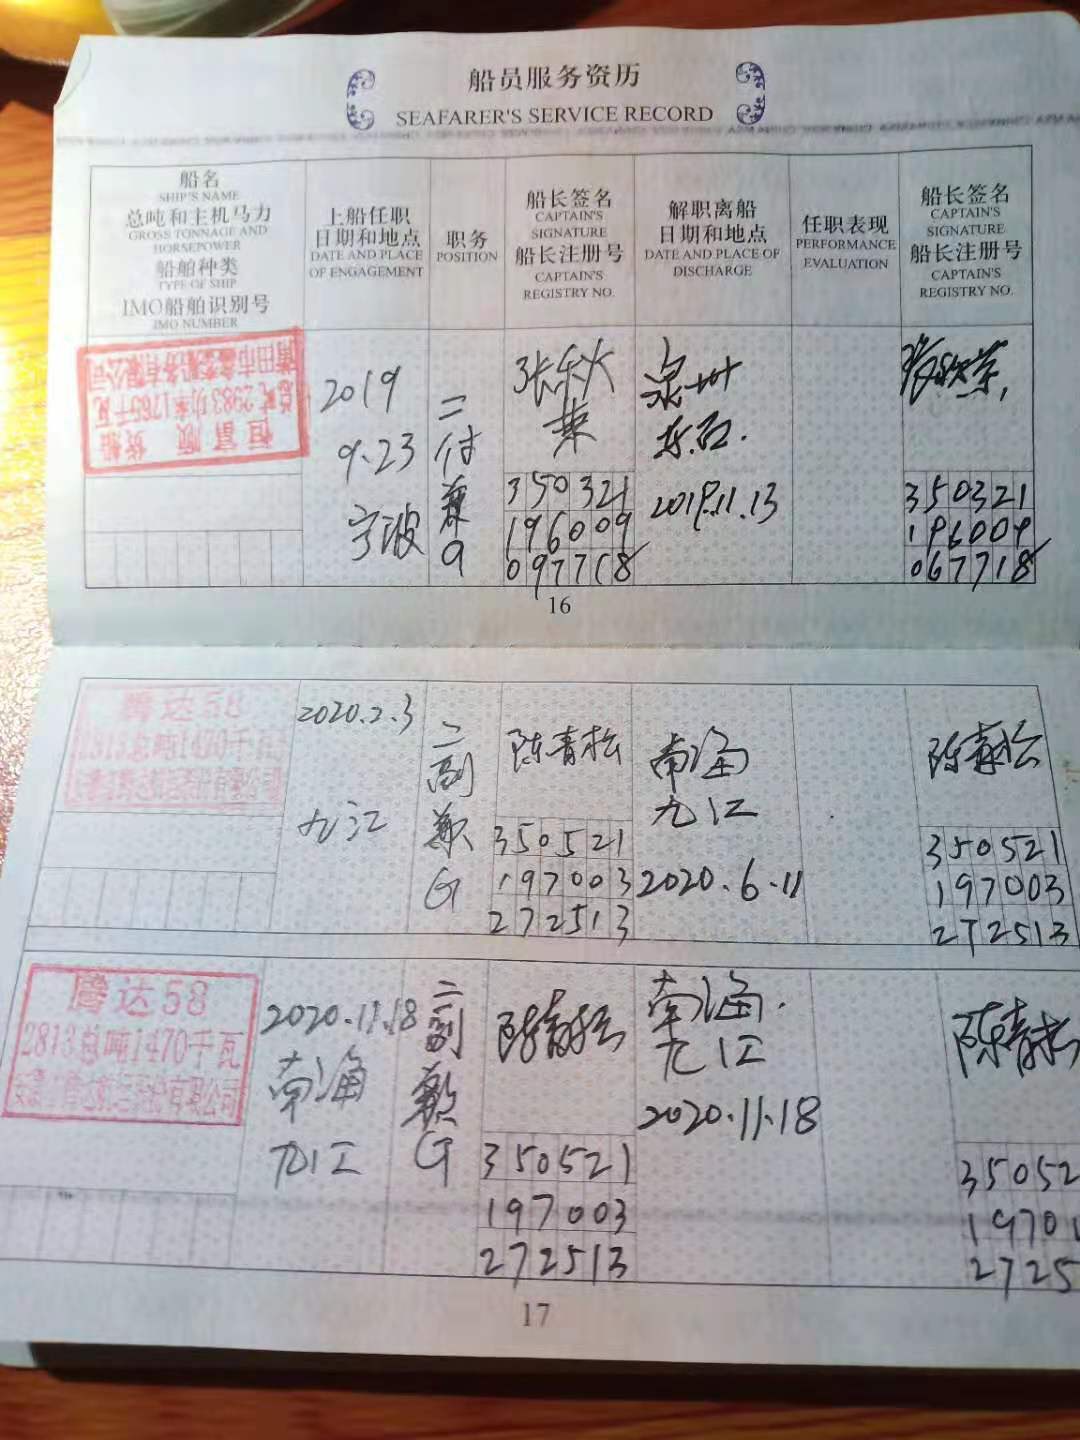 船员服务资历
SEAFARER'S SERVICE RECORD
船名
SHIP'S NAME
总吨和主机马力
GROSS TONNAGE AND
HORSEPOWER
船舶种类
TYPE OF SHIP
IMO船舶识别号
IMO NUMBER
上船任职
日期和地点
DATE AND PLACE
OF ENGAGEMENT
职务
POSITION
船长签名
CAPTAIN'S
SIGNATURE
船长注册号
CAPTAIN'S
REGISTRY NO.
解职离船
日期和地点
DATE AND PLACE OF
DISCHARGE
任职表现
PERFORMANCE
EVALUATION
船长签名
CAPTAIN'S
SIGNATURE
船长注册号
CAPTAIN'S
REGISTRY NO.
恒富顺 货船
总吨2983功率1765千瓦
2019
9.23
宁波
二
付
兼
G
350321
196009
泉州
2019.11.13
350321
196009
067718
16
腾达58
2813总吨1470千瓦
2020.2.3
九江
二
副
兼
G
陈青松
350521
197003
272513
南海
九江
2020.6.11
陈青松
350521
197003
272513
腾达58
2813总吨1470千瓦
2020.11.18
南海
九江
二
副
兼
G
陈青松
350521
197003
272513
南海
九江
2020.11.18
陈青松
35052
1970
2725
17